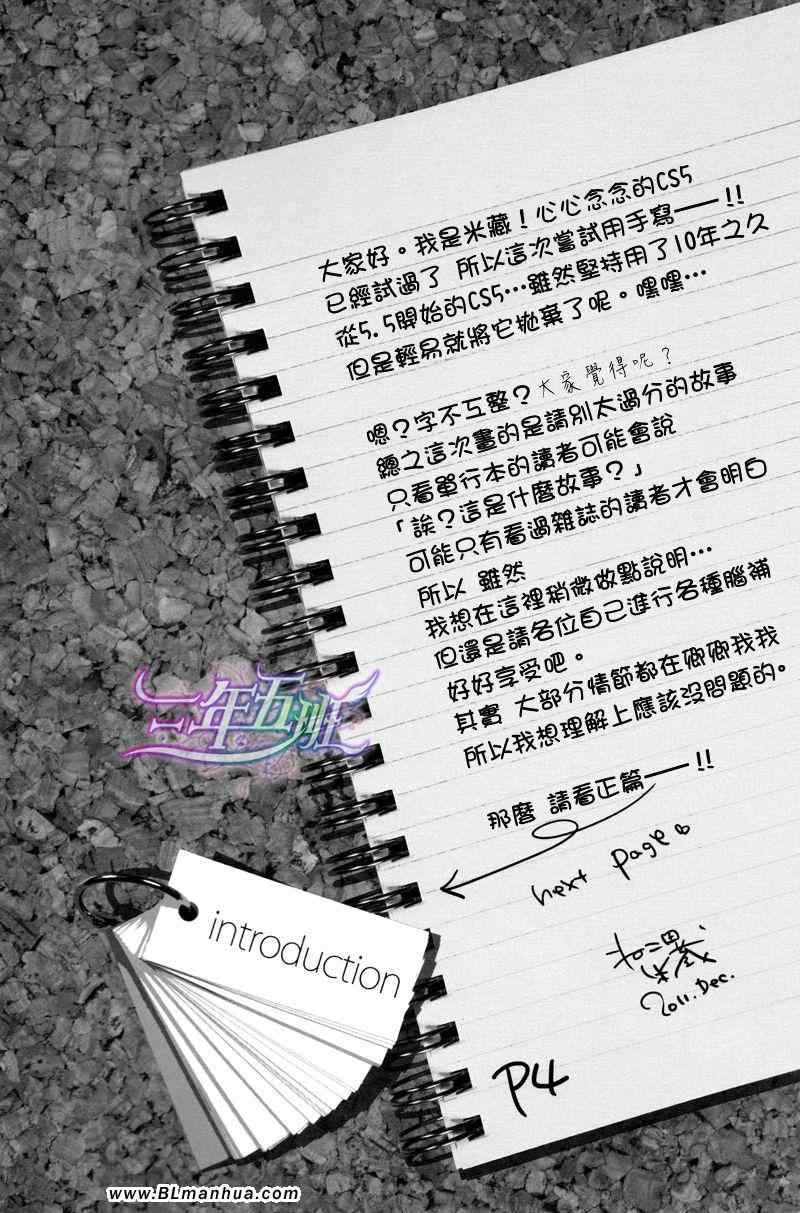 大家好。我是米藏！心心念念的CS5
已經試過了 所以這次嘗試用手寫——！！
從5.5開始的CS5…雖然堅持用了10年之久
但是輕易就將它拋棄了呢。嘿嘿…
嗯？字不工整？大家覺得呢？
總之這次畫的是請別太過分的故事
只看單行本的讀者可能會說
「誒？這是什麼故事？」
可能只有看過雜誌的讀者才會明白
所以 雖然
我想在這裡稍微做點說明…
但還是請各位自己進行各種腦補
好好享受吧。
其實 大部分情節都在卿卿我我
所以我想理解上應該沒問題的。
那麼 請看正篇——！！
next page
2011.Dec.
P4
introduction
三年五班
www.BLmanhua.com